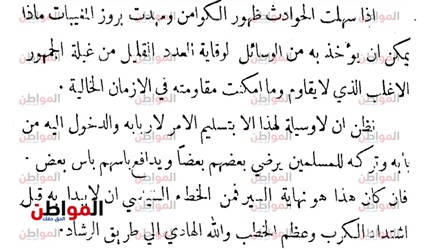 اذا سهلت الحوادث ظهور الكوامن ومهدت بروز المغيبات ماذا
يمكن ان يؤخذ به من الوسائل لوقاية العدد القليل من غيلة الجمهور
الاغلب الذي لايقاوم وما امكنت مقاومته في الازمان الخالية .
نظن ان لاوسيلة لهذا الا بتسليم الامر لاربابه والدخول اليه من
بابه وتركه للمسلمين يرضي بعضهم بعضاً ويدافع باسهم باس بعض .
فان كان هذا هو نهاية السير فمن الخطاء السيء ان لايبدا به قبل
اشتداد الكرب وعظم الخطب والله الهادي الي طريق الرشاد .
المواطن
الحق حقك